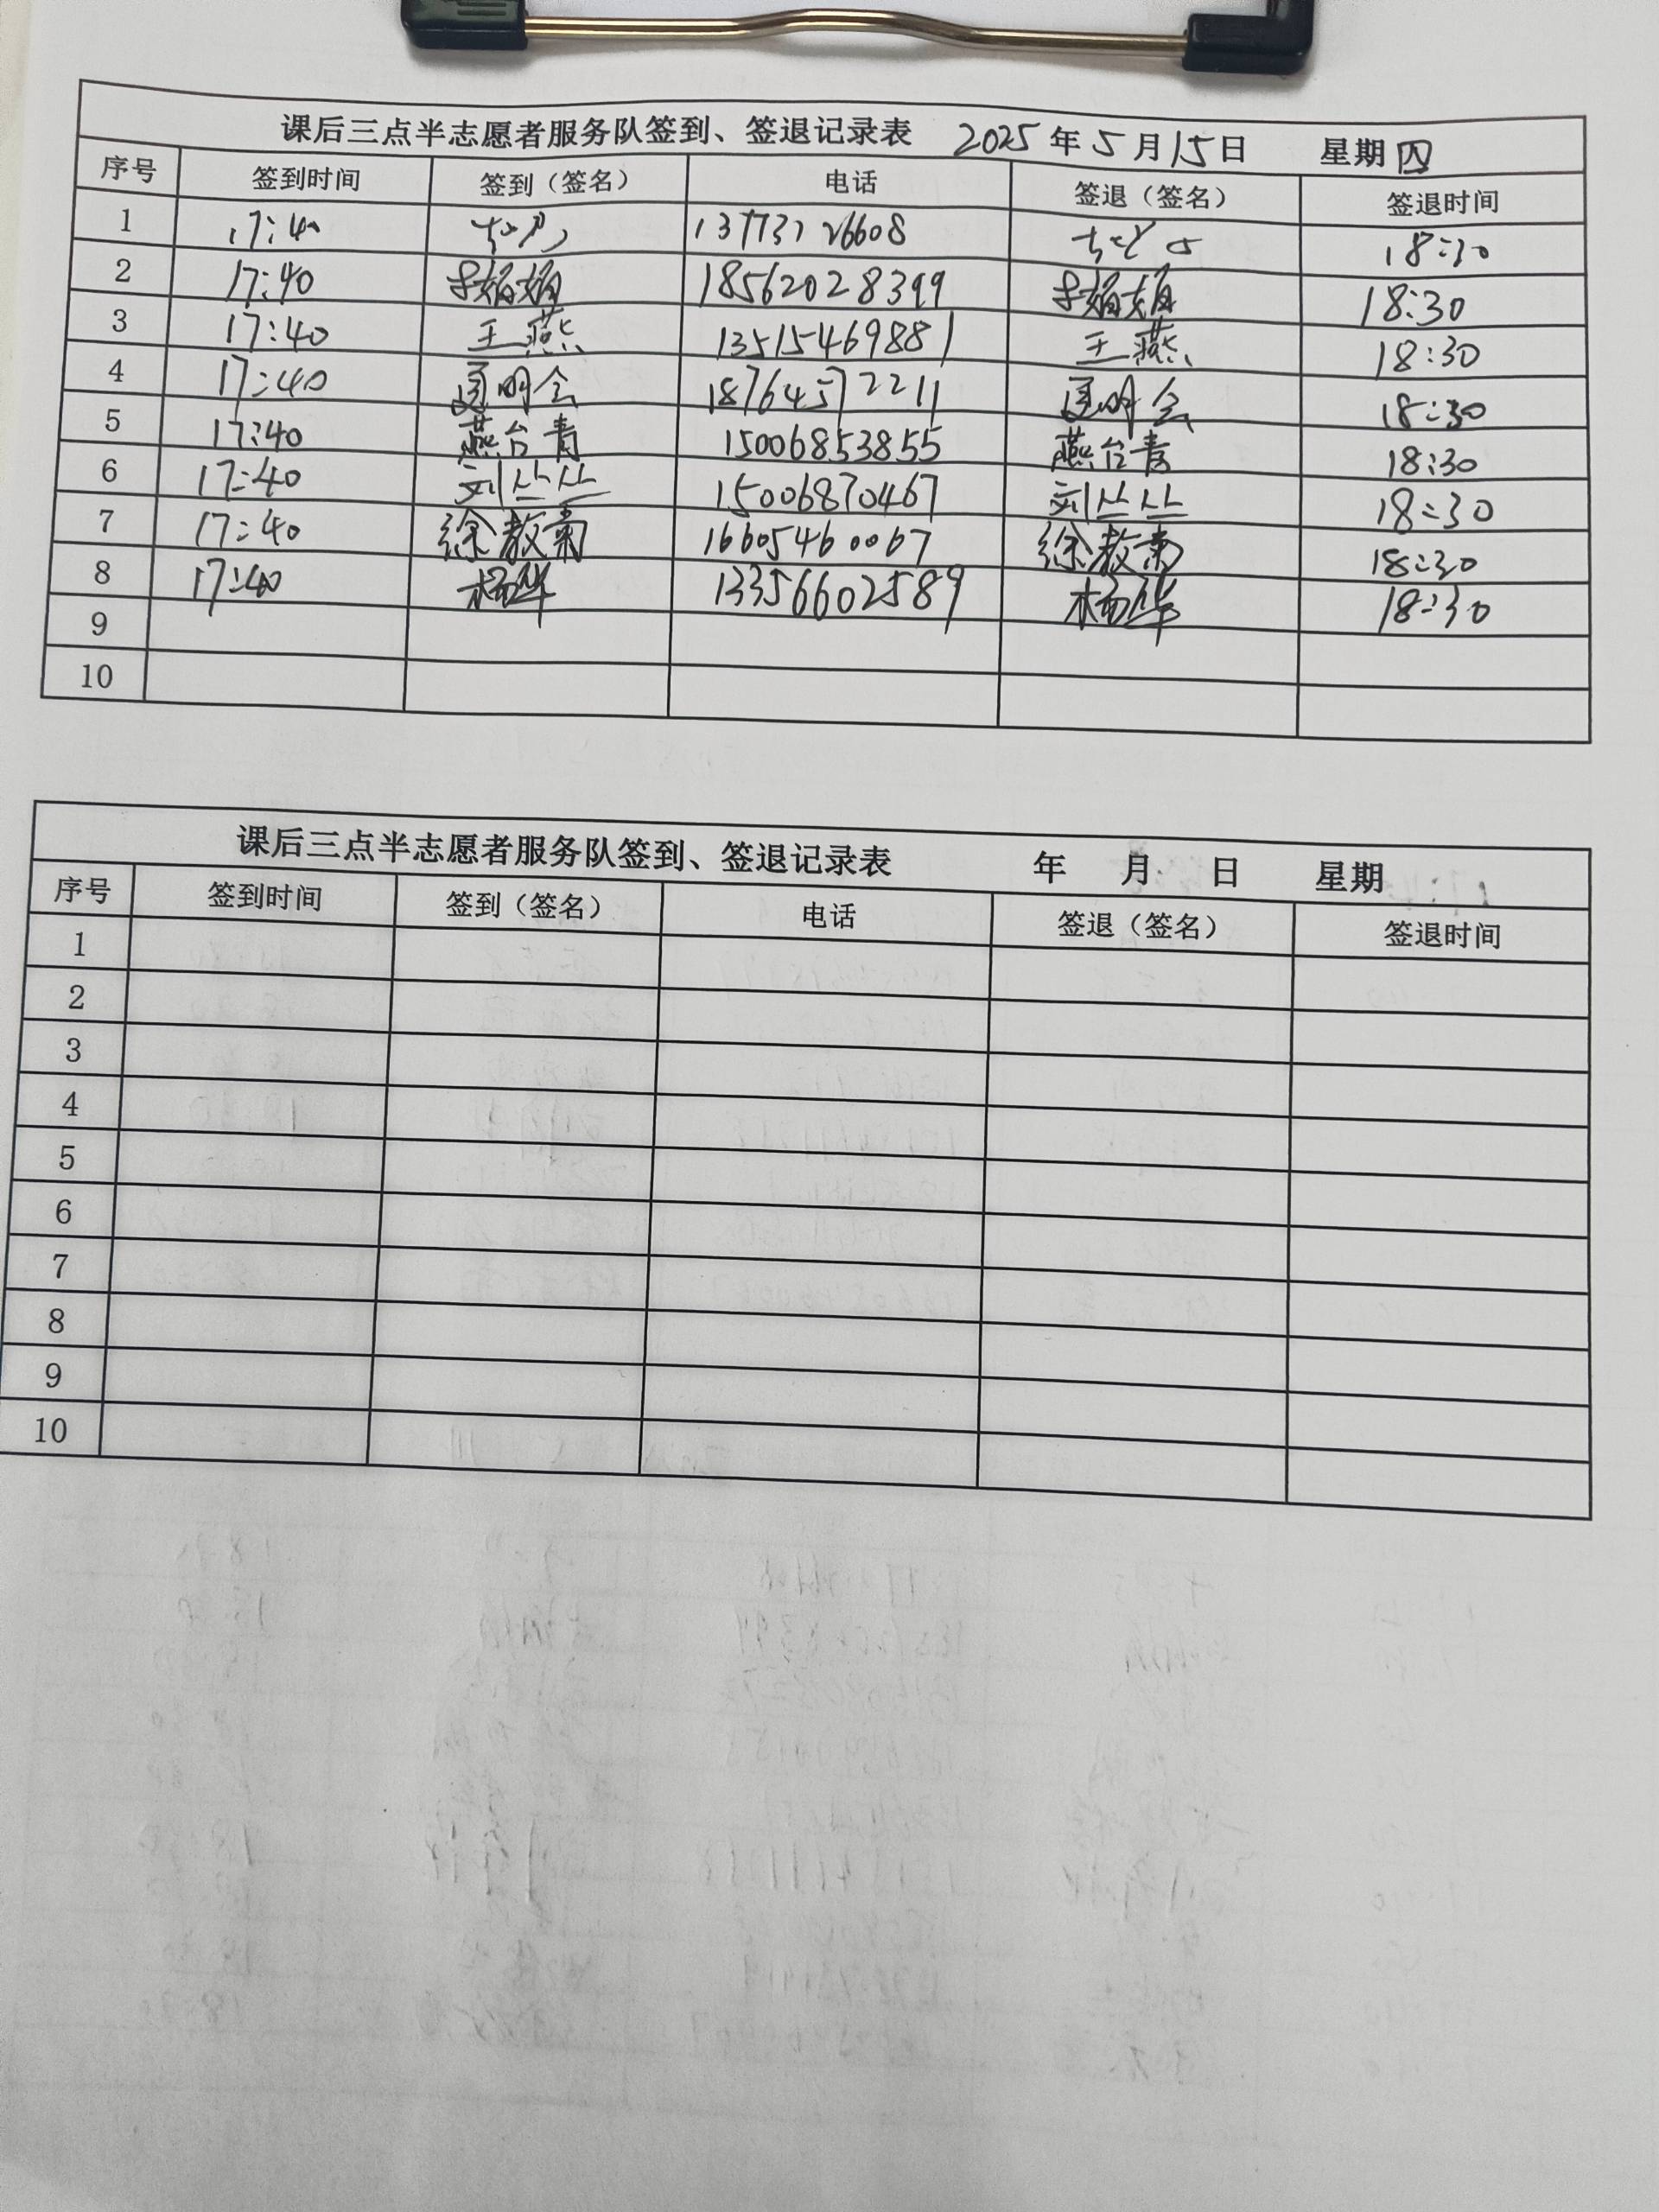 课后三点半志愿者服务队签到、签退记录表 2025年5月15日 星期四
序号 签到时间 签到（签名） 电话 签退（签名） 签退时间
1 17:40 18:30
2 17:40 18562028399 18:30
3 17:40 王燕 13515469881 王燕 18:30
4 17:40 18764572211 18:30
5 17:40 燕台青 15006853855 燕台青 18:30
6 17:40 刘丛丛 15006870467 刘丛丛 18:30
7 17:40 徐教菊 16605460067 徐教菊 18:30
8 17:40 杨华 13356602589 杨华 18:30
9
10
课后三点半志愿者服务队签到、签退记录表 年 月 日 星期
序号 签到时间 签到（签名） 电话 签退（签名） 签退时间
1
2
3
4
5
6
7
8
9
10